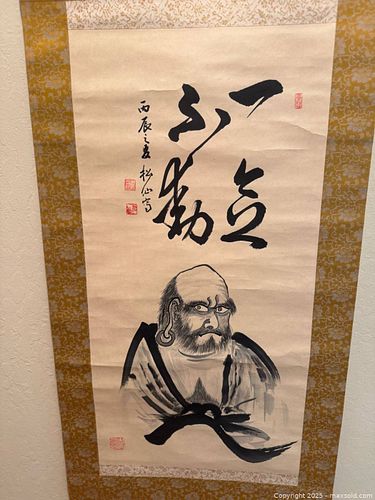 一念
不動
丙辰之夏 松仙寫
Copyright 2025 - maxsold.com